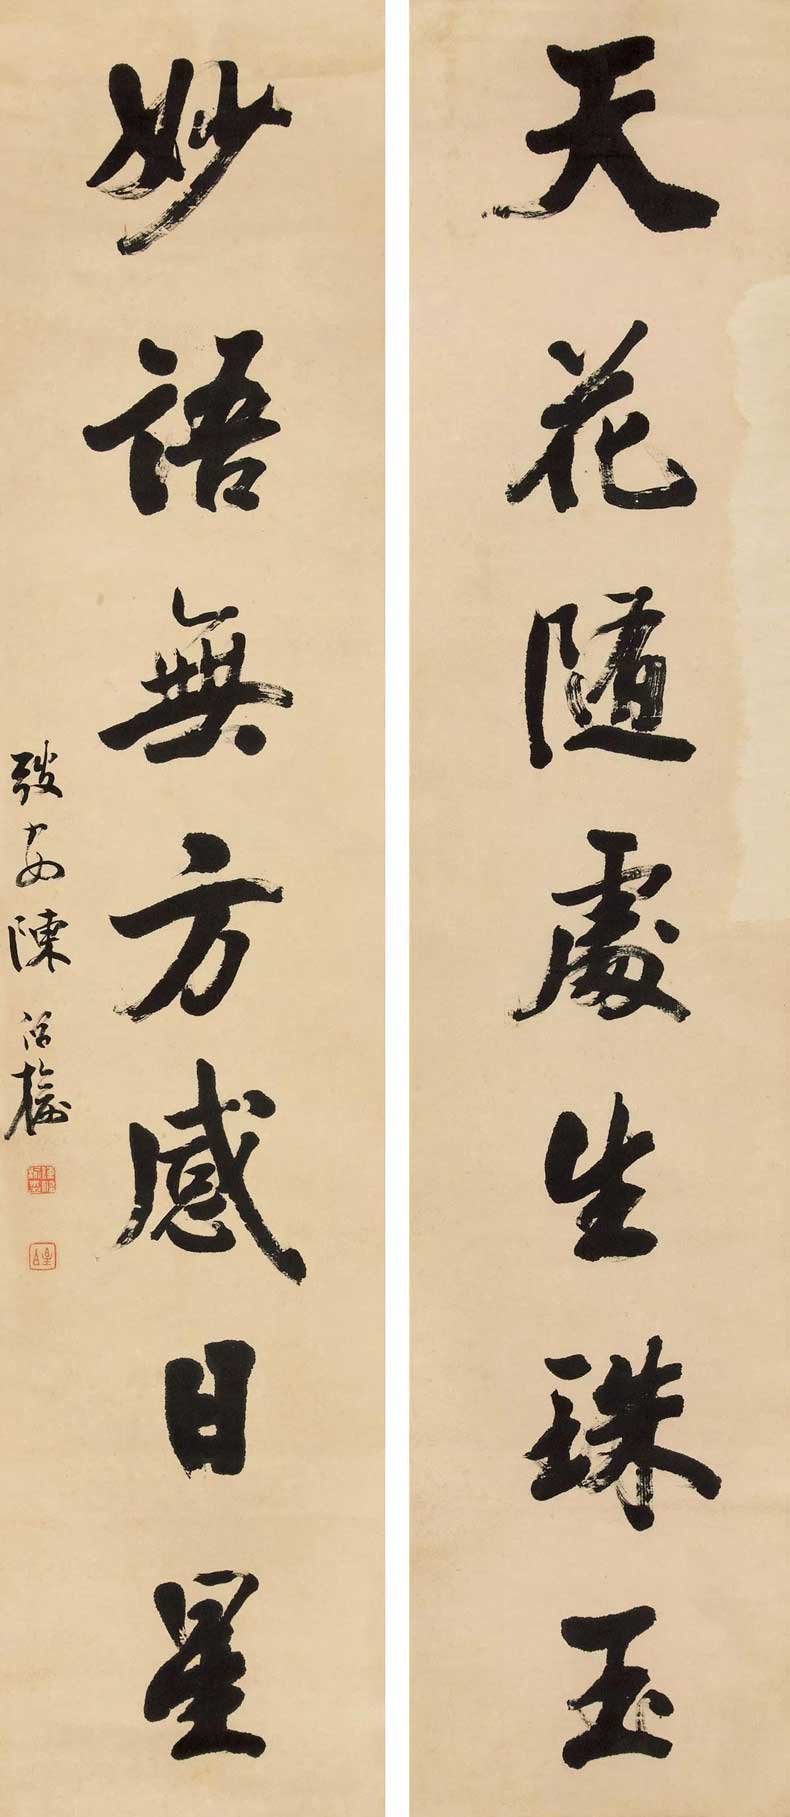 天花隨處生珠玉
妙語無方感日星
弢安陳